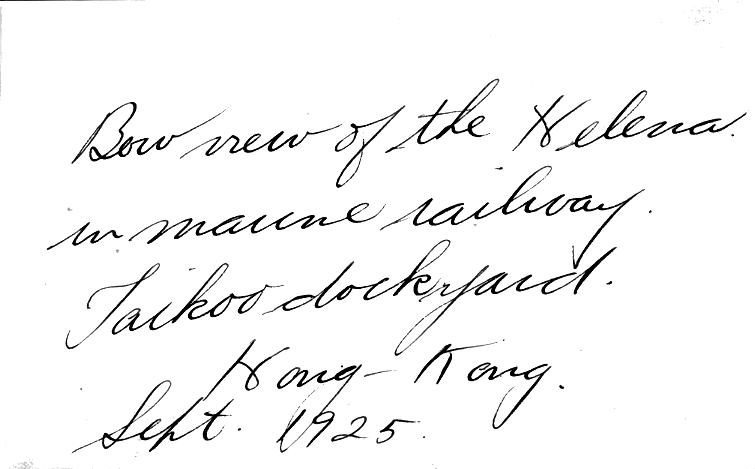 Bow view of the Helena.
in marine railway.
Taikoo dockyard.
Hong-Kong.
Sept. 1925.